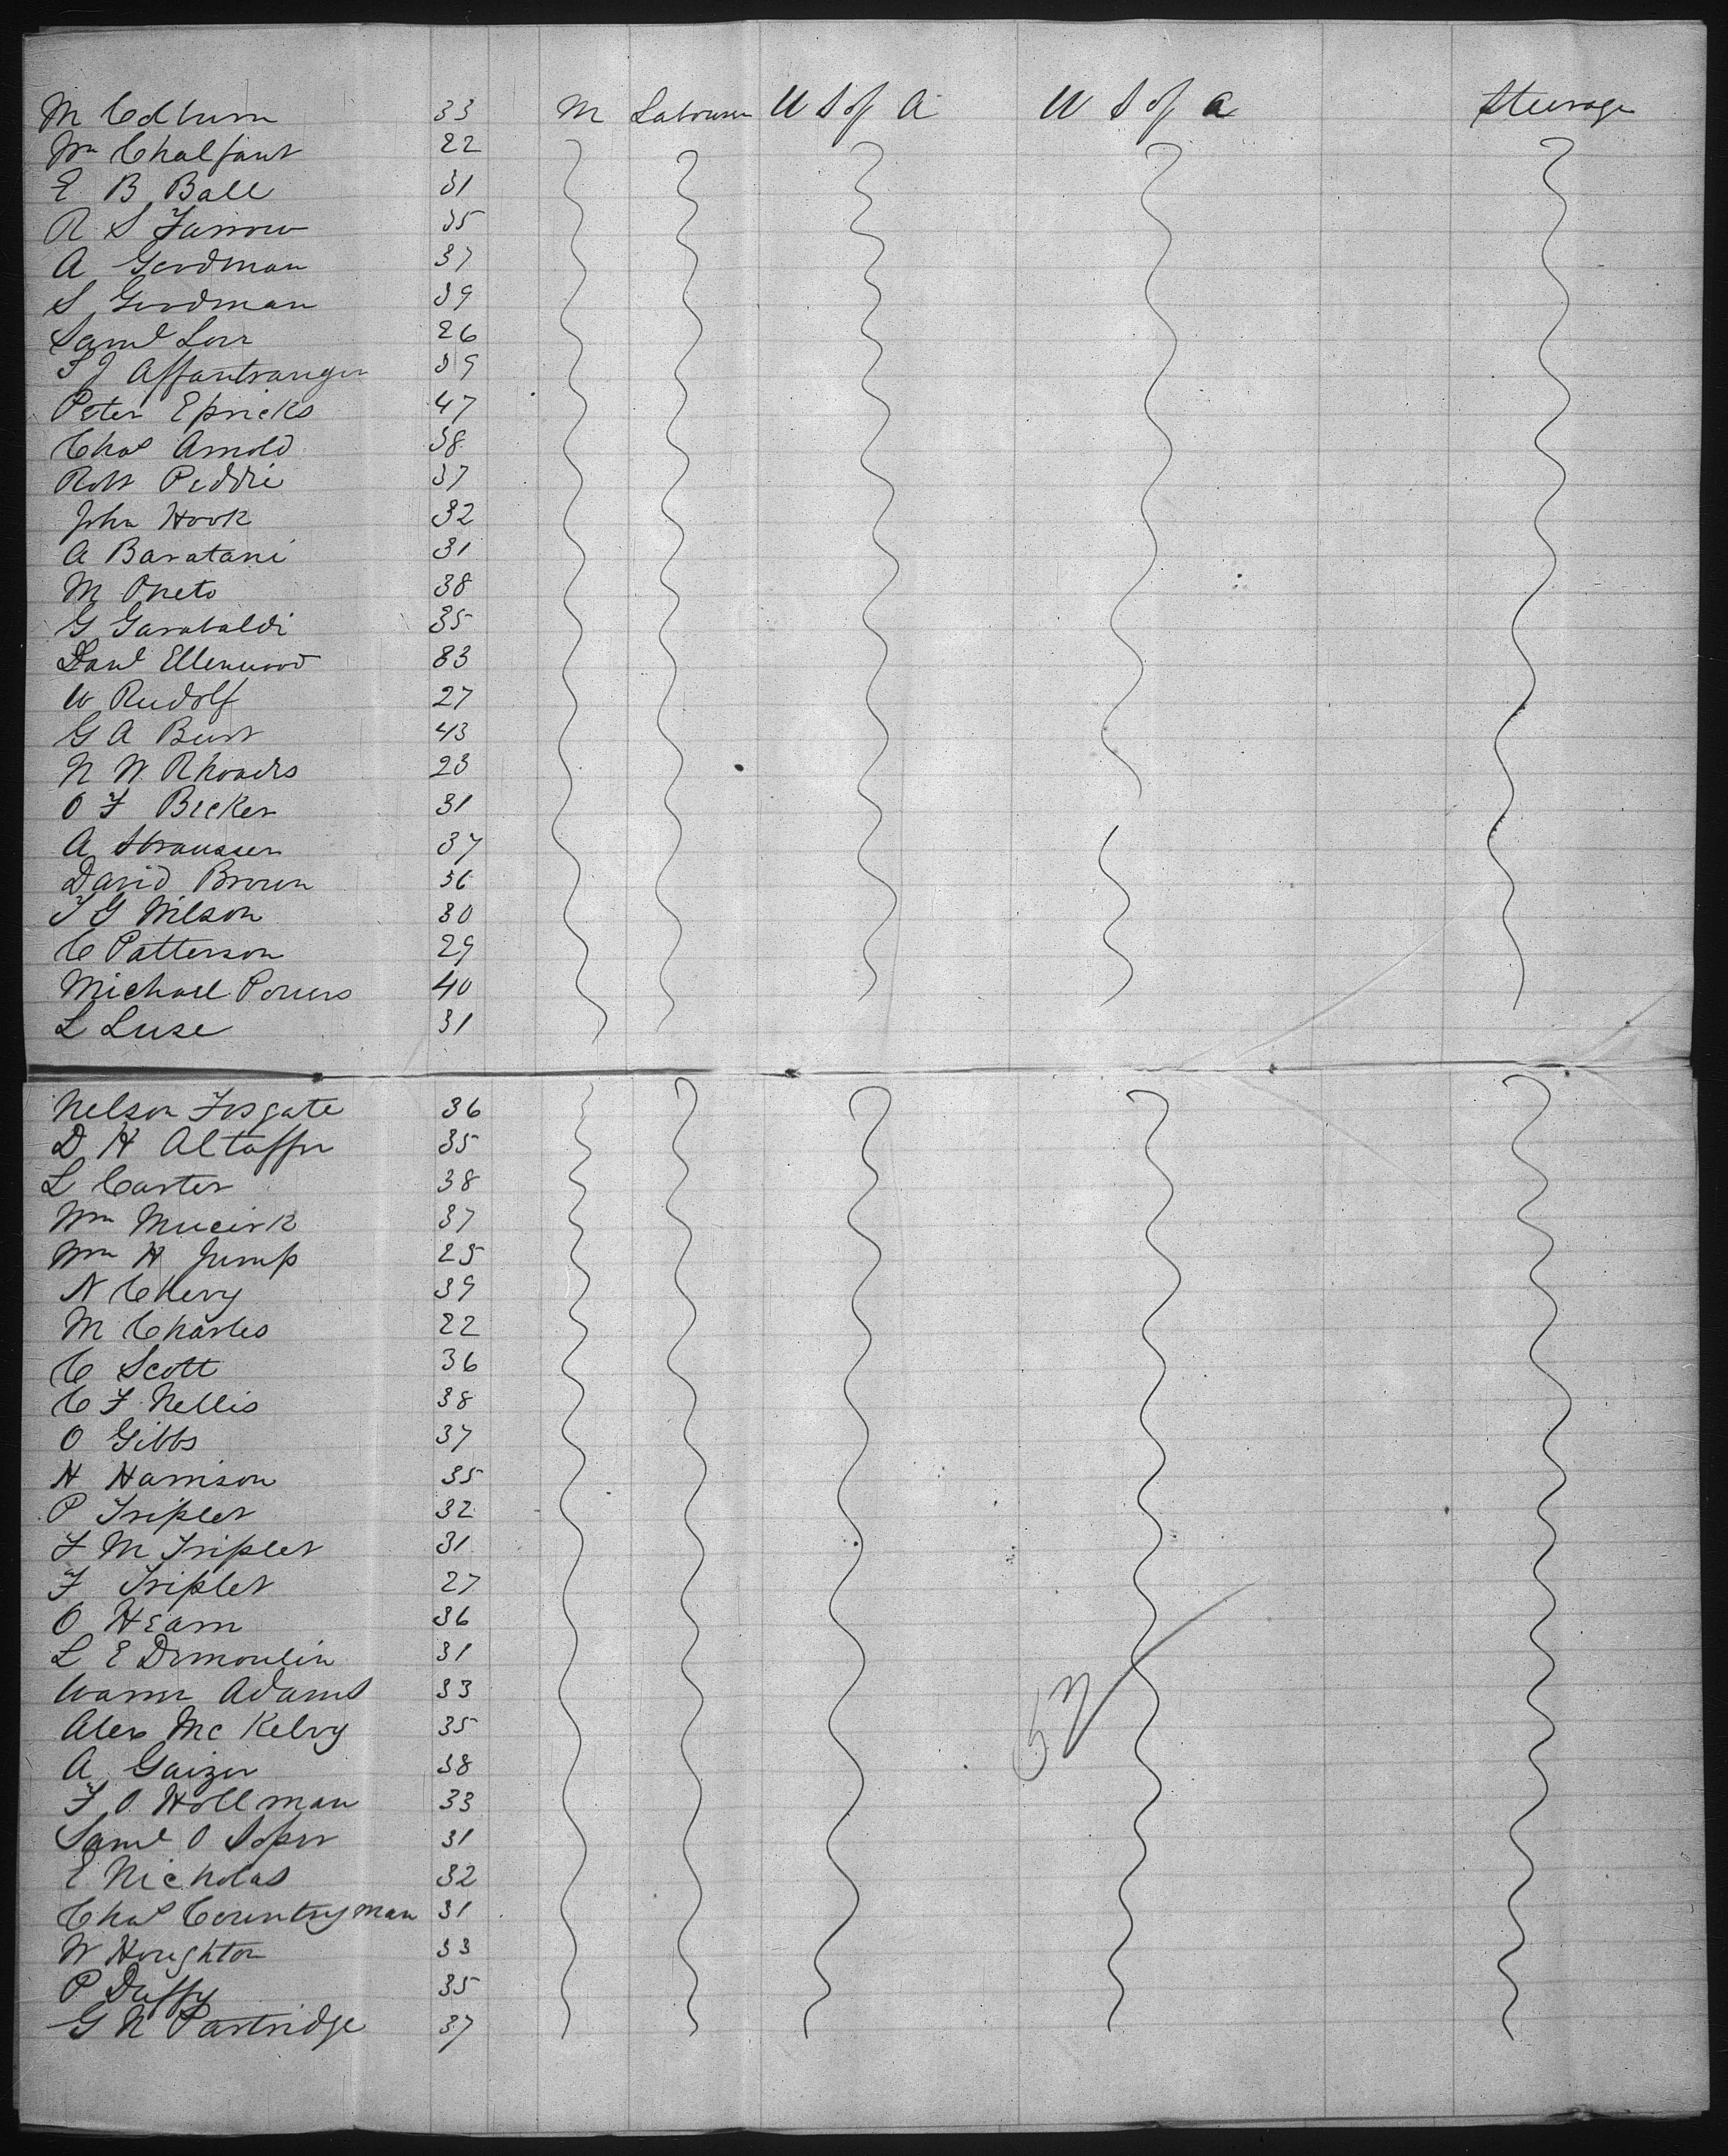 M Colburn 33 M Labourer U S of A U S of A Steerage
Wm Chalfant 22
E B Ball 31
R S Farrow 35
A Goodman 37
S Goodman 39
Saml Lorr 26
Affantranger 39
Peter Epricks 47
Chas Arnold 38
Robt Peddie 37
John Hook 32
A Baratani 31
M Oneto 38
G Garabaldi 35
Danl Ellenwood 33
W Rudolf 27
G A Burt 43
N W Rhoads 23
O F Becker 31
A Straussen 37
David Brown 36
T G Wilson 30
C Patterson 29
Michael Powers 40
L Luse 31
Nelson Fosgate 36
D H Altaffer 35
L Carter 38
Wm 37
Wm H Jump 25
N 39
M Charles 22
C Scott 36
C F Nellis 38
O Gibbs 37
H Harrison 35
P Triplet 32
F M Triplet 31
F Triplet 27
O Hearn 36
L E Demoulin 31
Warner Adams 33
Alex Mc Kelvy 35
A Gaizer 38
F O Hollman 33
Saml O Soper 31
E Nicholas 32
Chas Countryman 31
W Houghton 33
P Duffy 35
G N Partridge 37
52